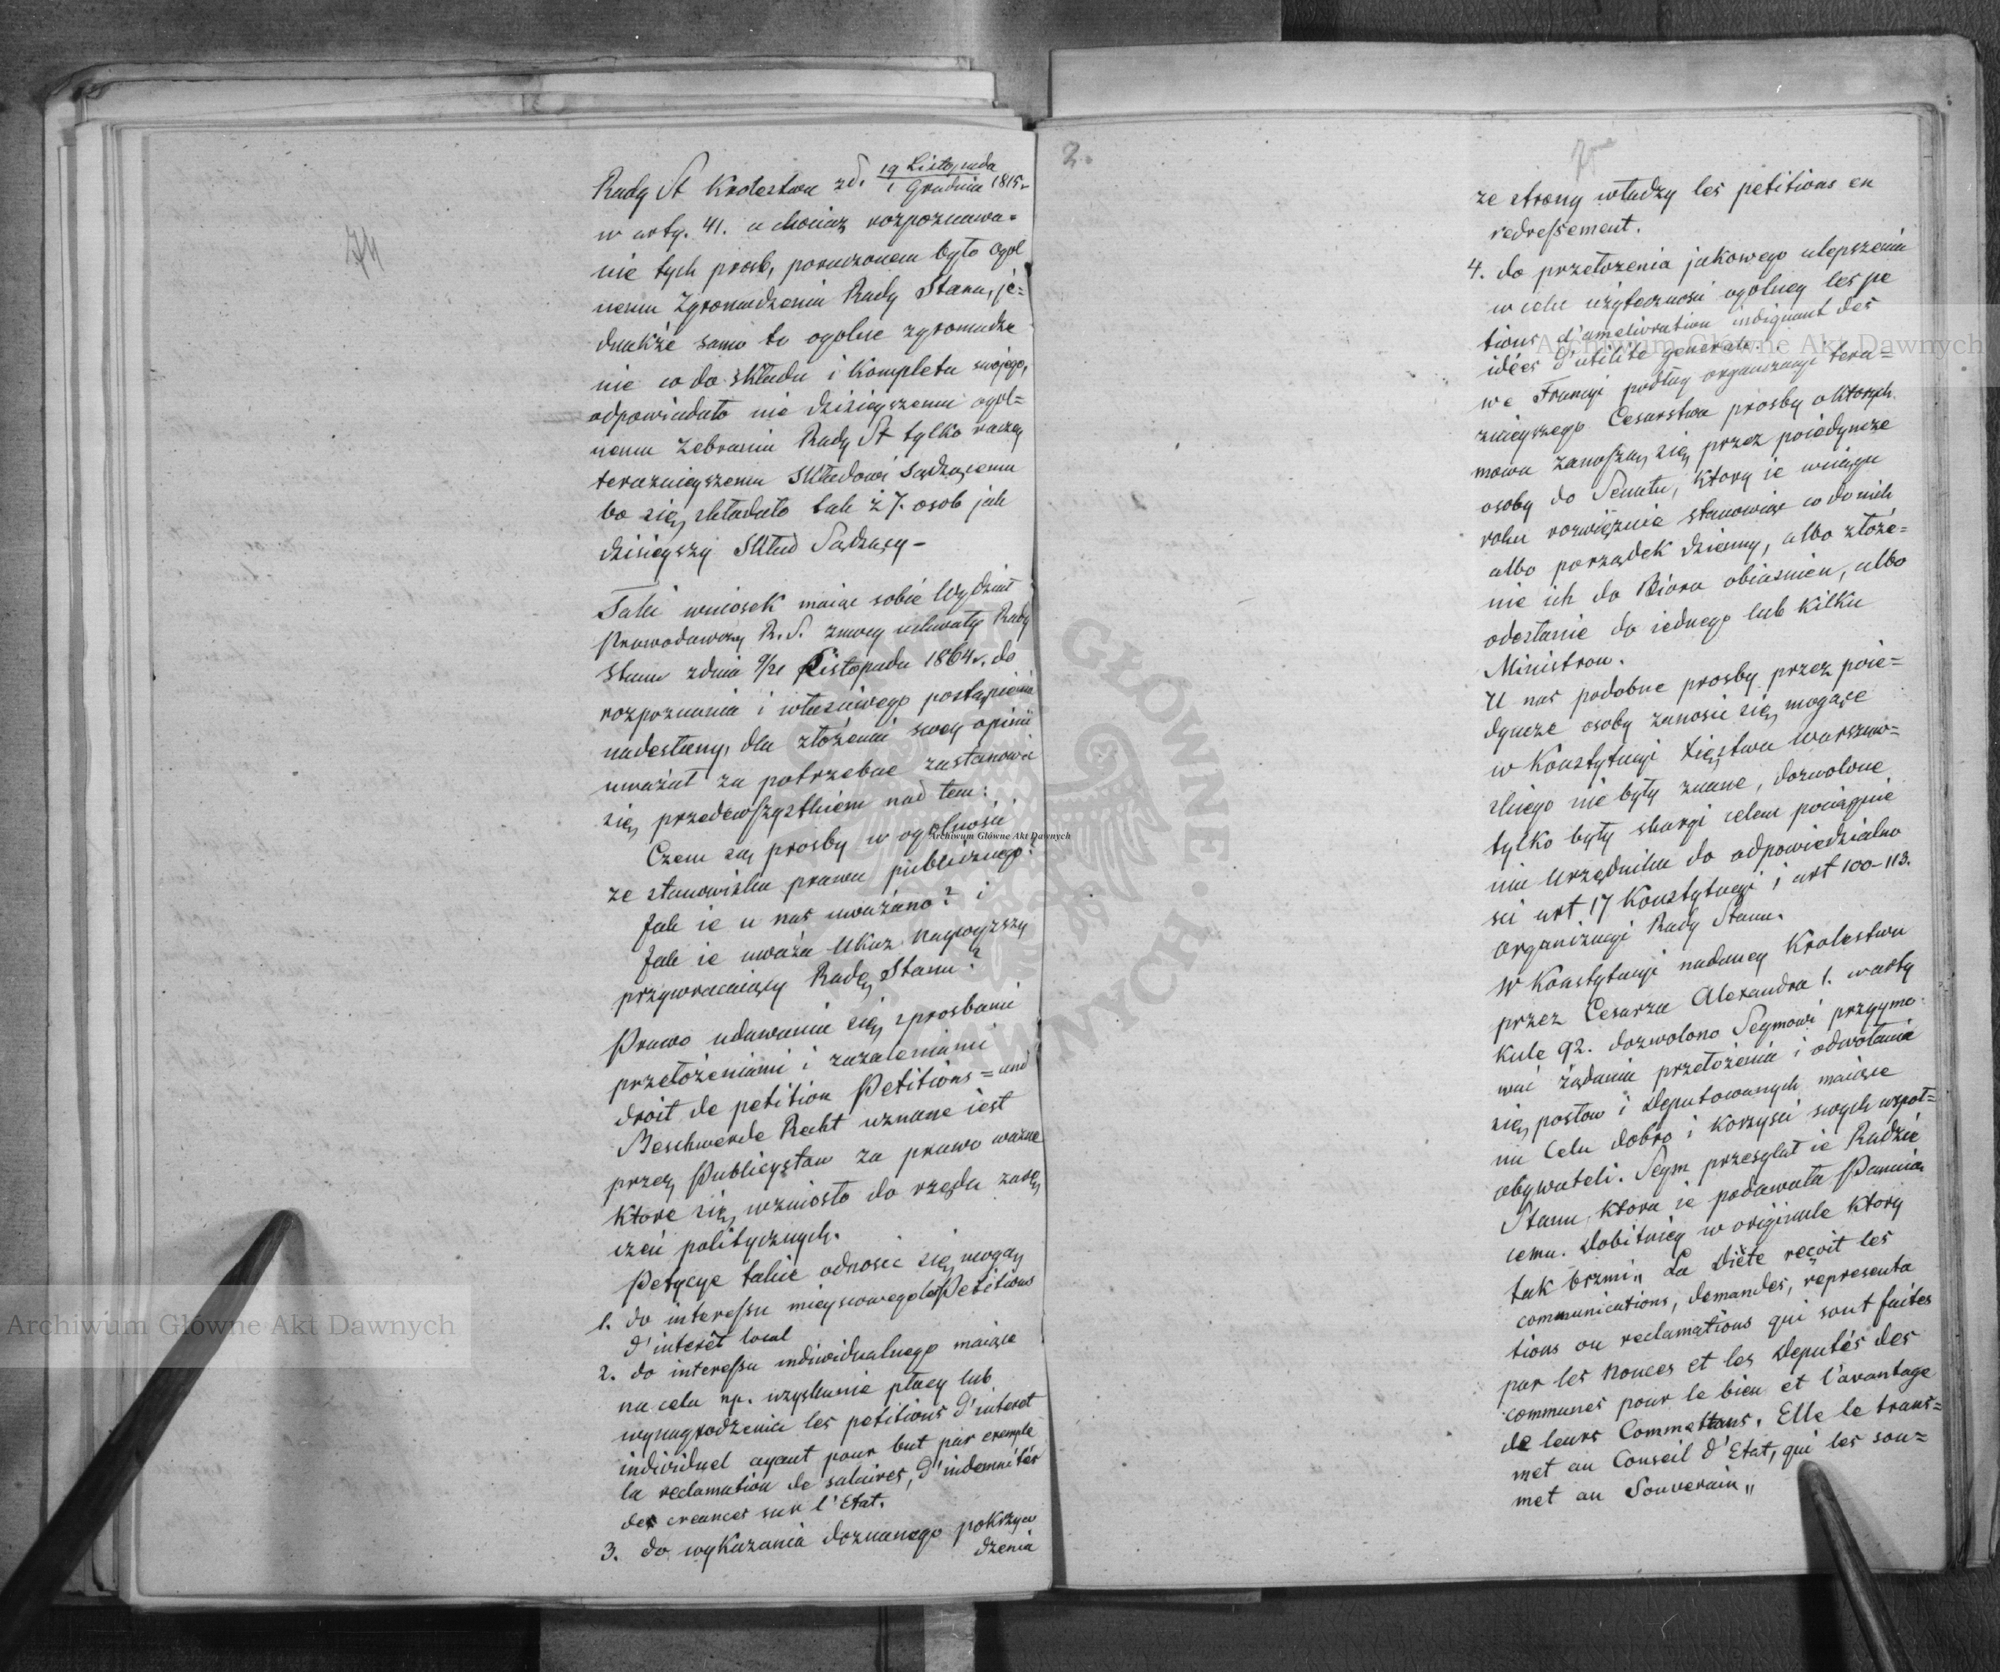 74
Rady St Krolestwa zd. 19 Listopada
1 Grudnia 1815r
w arty. 41. a chociaż rozpoznawa=
nie tych prosb, poruczonem było ogol
nemu Zgromadzeniu Rady Stanu, je=
dnakże samo to ogolne zgromadze
nie co do składu i kompletu swojego,
odpowiadało nie dzisieyszemu ogol=
nemu Zebraniu Rady St tylko raczey
teraznieyszemu Składowi Sądzącemu
bo się składało tak z 7. osob jak
dzisieyszy Skład Sądzący –
Taki wniosek maiąc sobie Wydział
Prawodawczy R. S. zmocy uchwały Rady
Stanu zdnia 9/21 Listopada 1864r. do
rozpoznania i właściwego postąpienia
nadesłany, dla złożenia swey opinii
uważał za potrzebne zastanowić
się przedewszystkiem nad tem:
Czem są prosby w ogolności
ze stanowiska prawa publicznego?
Jak ie u nas uważano? i
Jak ie uważa Ukaz Naywyższy
przywracaiący Radę Stanu?
Prawo udawania się zprosbami
przełożeniami i zażaleniami
droit de petition Petitions = und
Beschwerde Recht uznane iest
przez Publicystow za prawo ważne
ktore się wzniosło do rzędu zasę
czeń politycznych.
Petycye takie odnosić się mogą
1. do interessu mieyscowego les Petitions
d'interêt local
2. do interessu indiwidualnego maiące
na celu np. uzyskanie płacy lub
wynagrodzenia les petitions d'interet
individuel ayant pour but par exemple
la reclamation de salaires, d'indemnités
des creances sur l'Etat.
3. do wykazania doznanego pokrzyw
dzenia
2.
75
ze strony władzy les petitions en
redressement.
4. do przełożenia jakowego ulepszenia
w celu użyteczności ogólney les pe
titions d'amelioration indiquant des
idées d'utilité generale.
we Francyi podług organizacyi tera=
znieyszego Cesarstwa prosby o ktorych
mowa zanoszą się przez poiedyncze
osoby do Senatu, ktory ie wciągu
roku rozwiąznie stanowiąc co do nich
albo porządek dzienny, albo złoże=
nie ich do Biora obiasnien, albo
odesłanie do iednego lub kilku
Ministrow.
U nas podobne prosby przez poie=
dyncze osoby zanosic się mogące
w Konstytucyi Xięstwa Warszaw=
skiego nie były znane, dozwolone
tylko były skargi celem pociągnie
nia Urzędnika do odpowiedzialno
sci art 17 Konstytucyi i art 100–113.
organizacyi Rady Stanu.
W Konstytucyi nadaney Krolestwu
przez Cesarza Alexandra 1. warty
kule 92. dozwolono Seymowi przyymo
wać żądania przełożenia i odwołania
się posłow i Deputowanych maiące
na celu dobro i korzysci swych wspoł=
obywateli. Seym przesyłał ie Radzie
Stanu, ktora ie podawała Panuią
cemu. Dobitniey w originale ktory
tak brzmi „ La Diête reçoit les
communications, demandes, representa
tions ou reclamations qui sont faites
par les Nonces et les Deputés des
communes pour le bien et l'avantage
de leurs Commettans. Elle le trans=
met au Conseil d'Etat, qui les sou=
met au Souverain „
Archiwum Główne Akt Dawnych
Archiwum Główne Akt Dawnych
Archiwum Główne Akt Dawnych